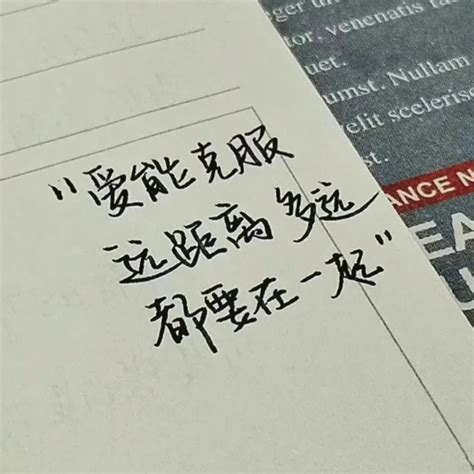 "爱能克服
远距离多远
都要在一起"
tor, venenatis
uet.
umst. Nullam
elit sceleris
st.
ANCE N
EA